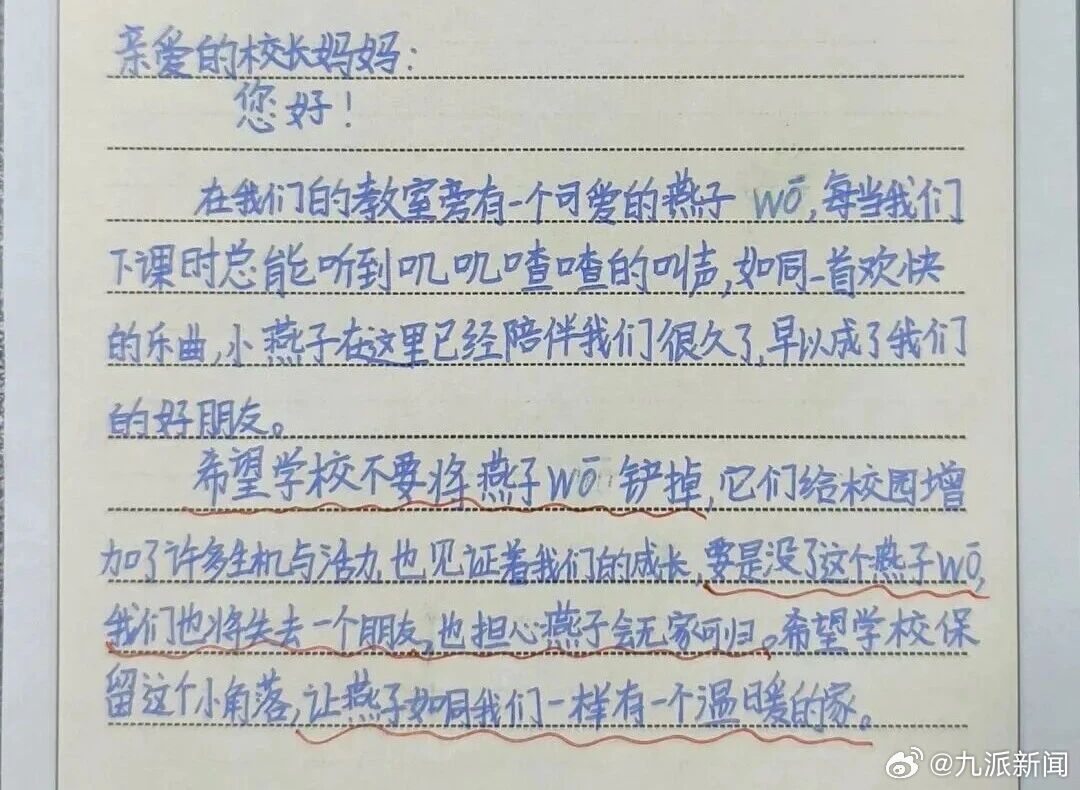 亲爱的校长妈妈:
您好!
在我们的教室旁有一个可爱的燕子 wō,每当我们
下课时总能听到叽叽喳喳的叫声,如同一首欢快
的乐曲,小燕子在这里已经陪伴我们很久了,早以成了我们
的好朋友。
希望学校不要将燕子wō 铲掉,它们给校园增
加了许多生机与活力,也见证着我们的成长,要是没了这个燕子wō,
我们也将失去一个朋友,也担心燕子会无家可归。希望学校保
留这个小角落,让燕子如同我们一样有一个温暖的家。
@九派新闻